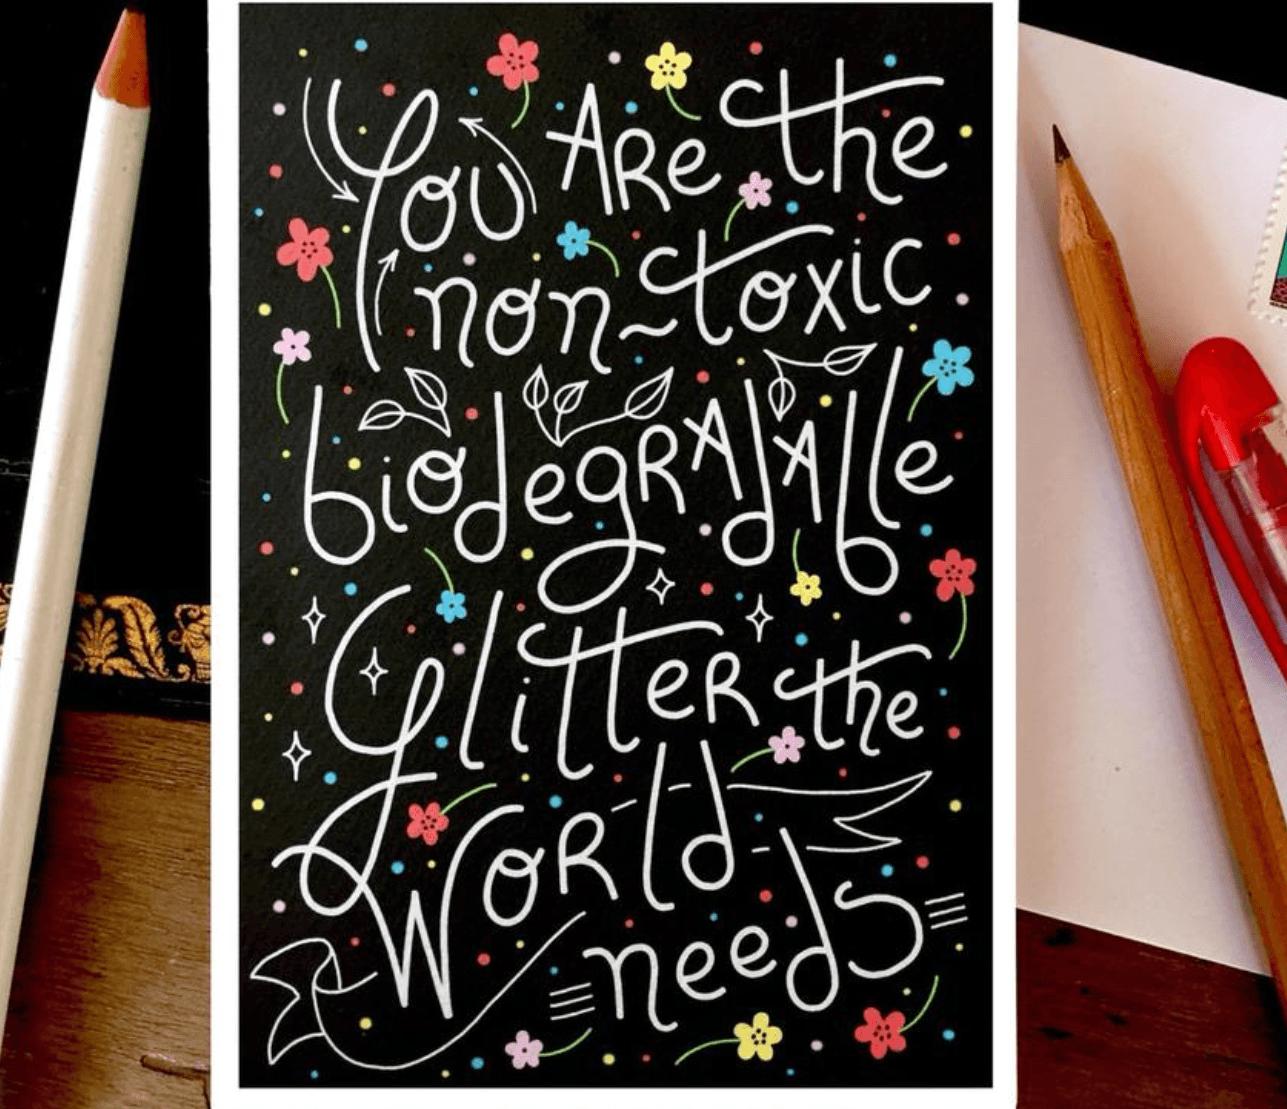 You ARe the
non-toxic
biodegRAdAble
GlitteR the
WoRld
needs